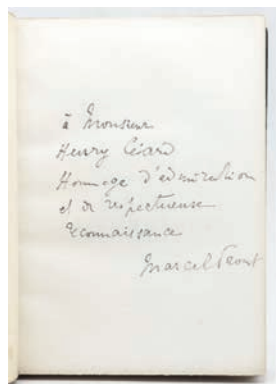 à Monsieur
Henry Céard
Hommage d'admiration
et de respectueuse
reconnaissance
Marcel Proust